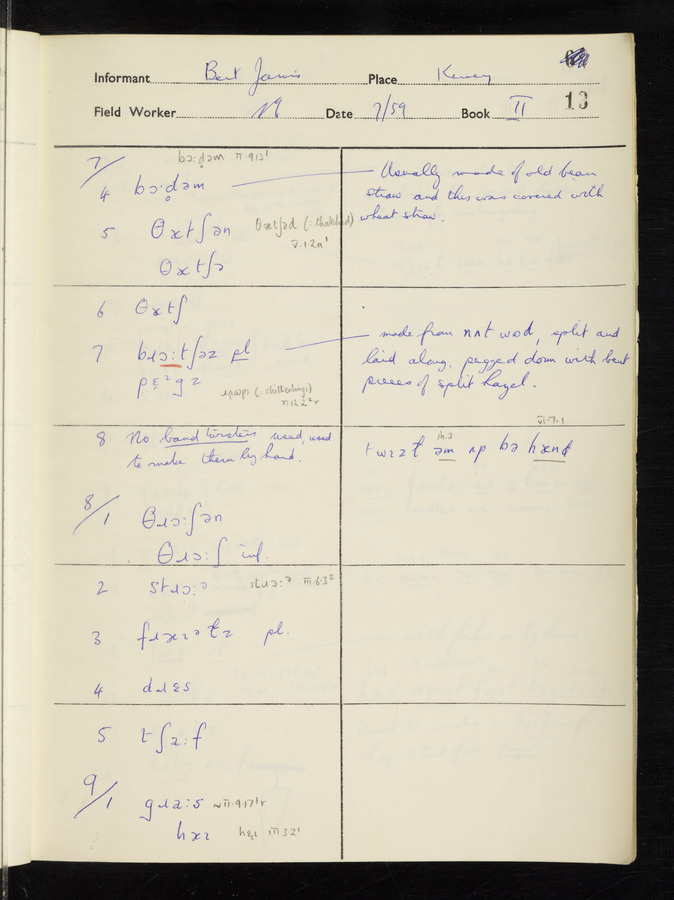 Informant Bert Jarvis Place
Field Worker Date 7/59 Book II 13
7/
bɔːd̥əm II.9.13¹
4 bɔ·d̥əm
Usually made of old bean
straw and this was covered with
wheat straw.
5 θætʃən θætʃəd (= thatched)
V.1.2a¹
θætʃə
6 θætʃ
7 bɹɔːtʃəz pl
made from nʌt wʊd, split and
laid along, pegged down with bent
pieces of split hazel.
pɛ²gz
(= chitterlings)
8 No band twisters used, used
to make them by hand.
VI.7.1
twɪət əm ʌp bə hænd
8/
1 θɹɔːʃən
θɹɔːʃ inf.
2 stɹɔːə stɹɔːə III.6.3²
3 pl.
4 dɹɛs
5 tʃaːf
9/
1 gɹaːs II.9.17¹r
hæɪ hɛɪ III.3.2¹